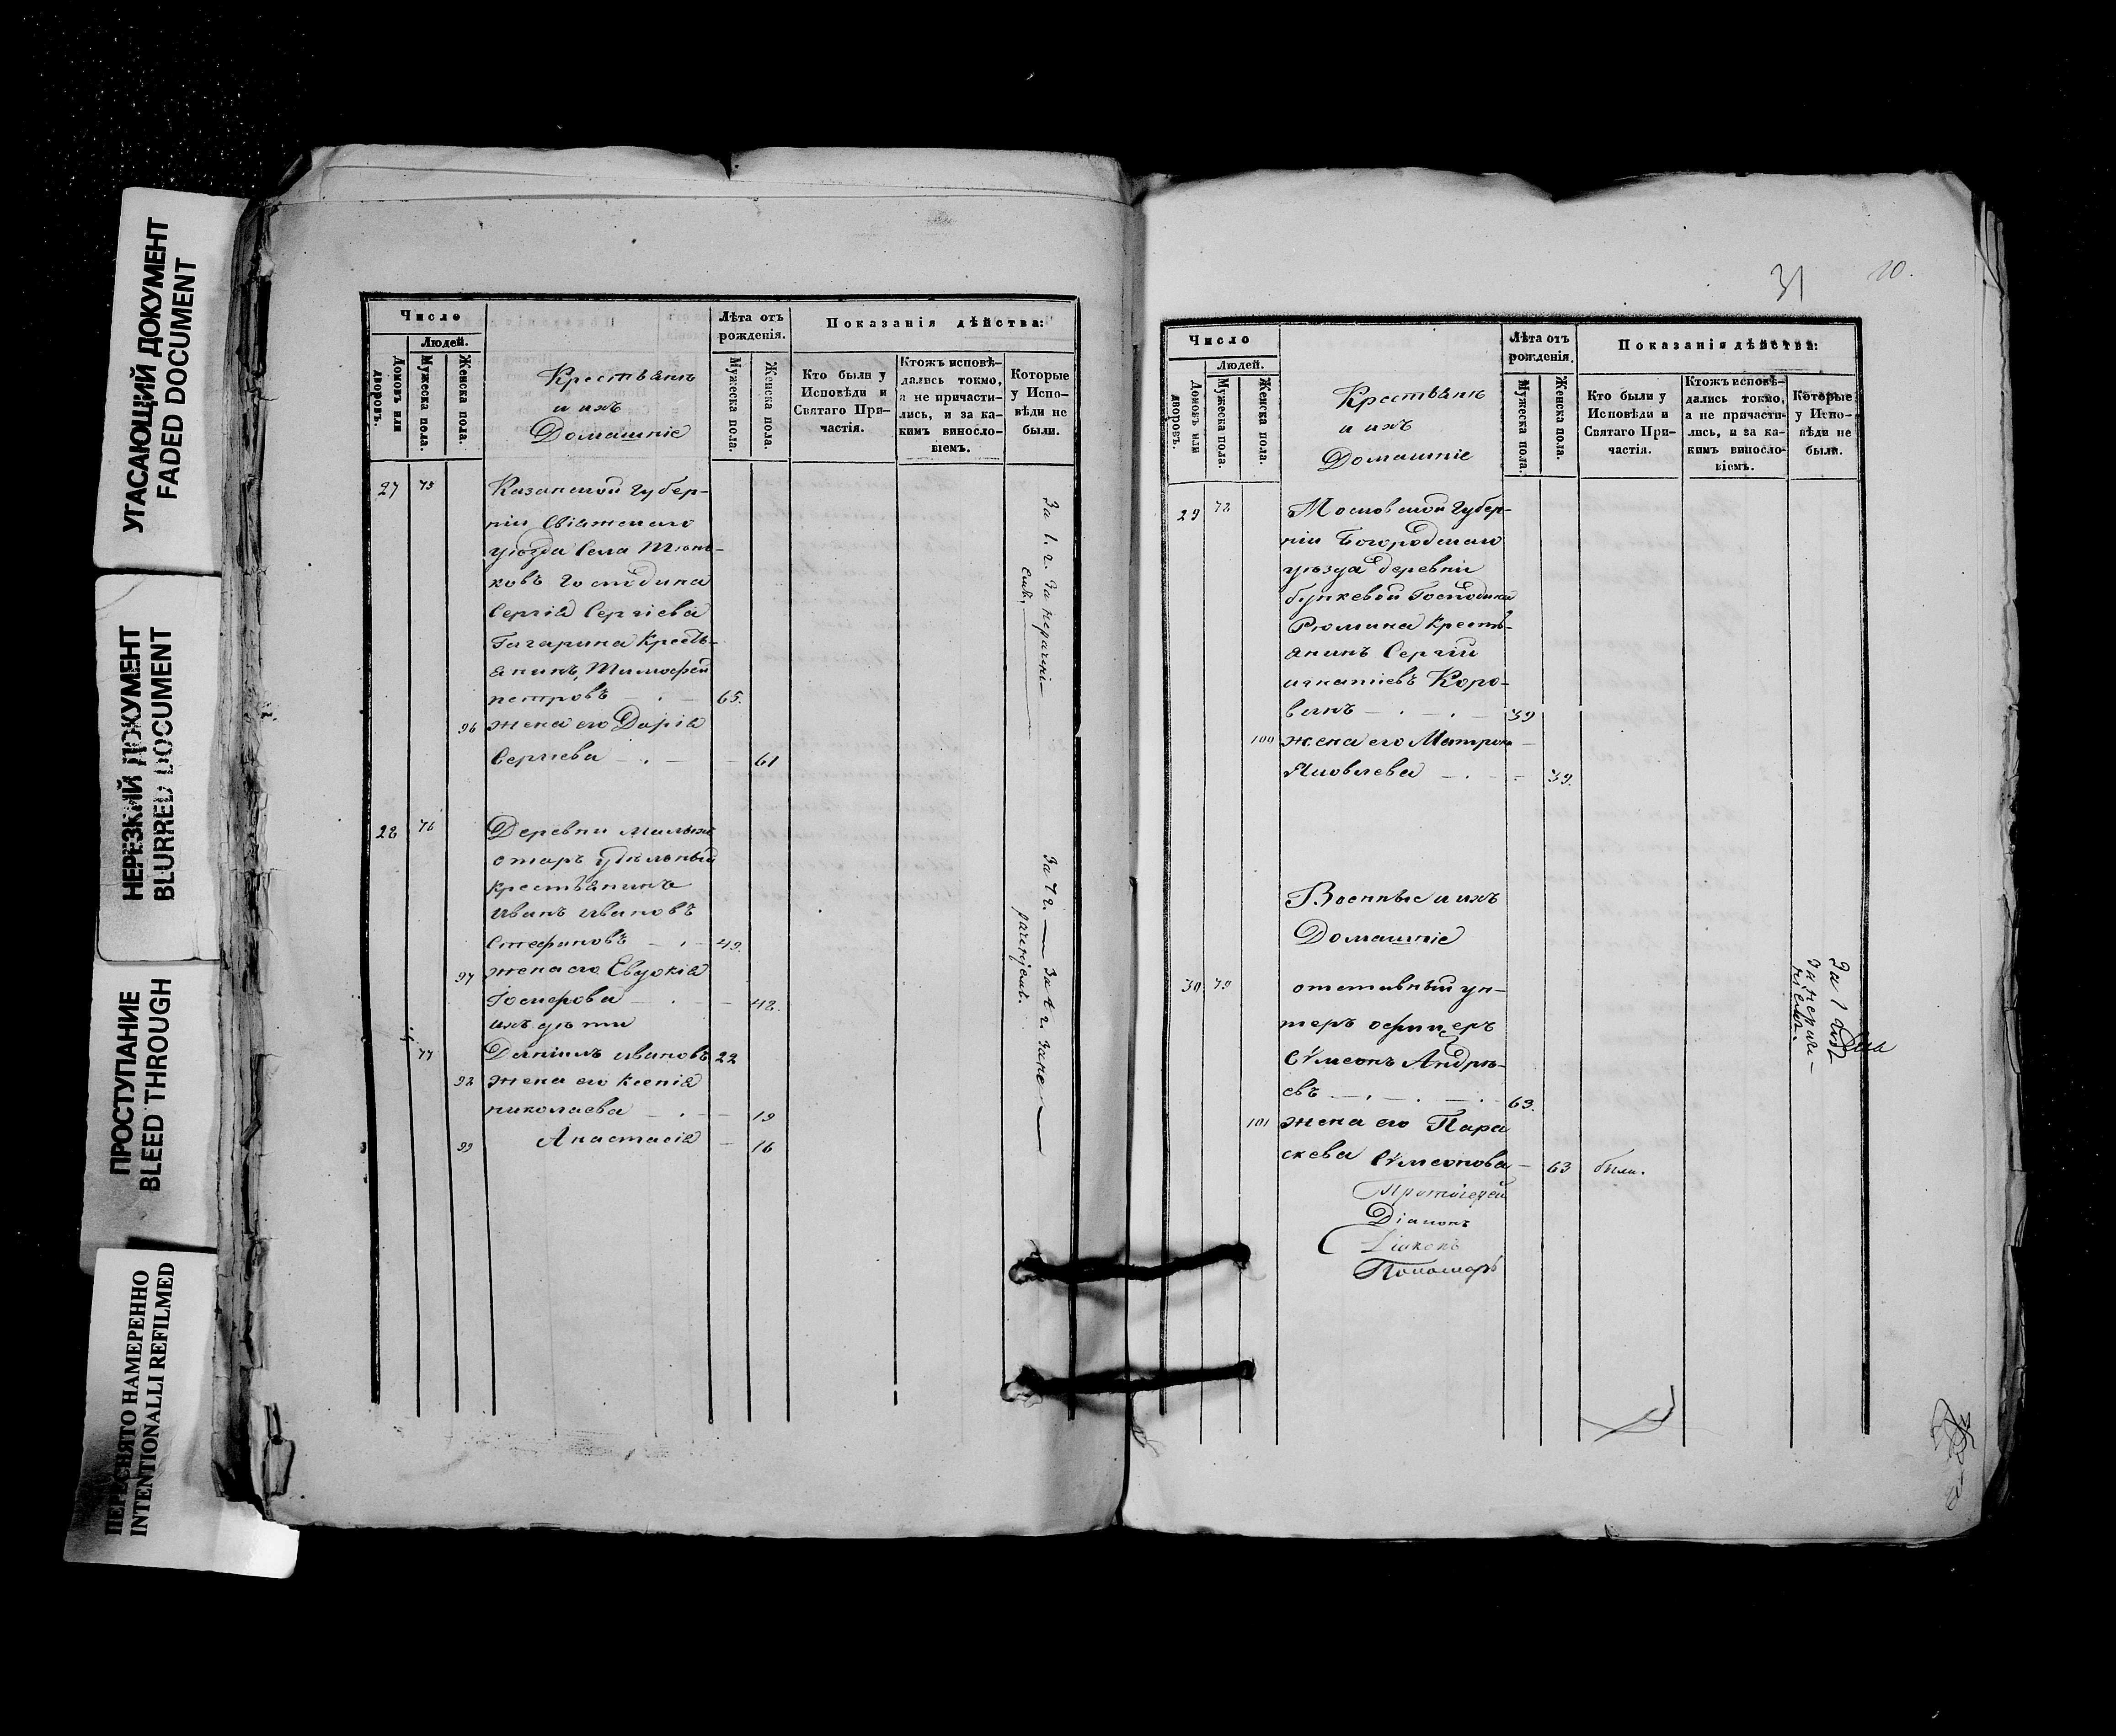 УГАСАЮЩИЙ ДОКУМЕНТ
FADED DOCUMENT
НЕРЕЗКИЙ ДОКУМЕНТ
BLURRED DOCUMENT
ПРОСТУПАНИЕ
BLEED THROUGH
ПЕРЕСНЯТО НАМЕРЕННО
INTENTIONALLI REFILMED
Число
Людей.
Домовъ или дворовъ.
Мужеска пола.
Женска пола.
Крестьянъ
и ихъ
Домашніе
Лѣта отъ
рожденія.
Мужеска пола.
Женска пола.
Показанія дѣйства:
Кто были у
Исповѣди и
Святаго При-
частія.
Ктожъ исповѣ-
дались токмо,
а не причасти-
лись, и за ка-
кимъ винсло-
віемъ.
Которые
у Испо-
вѣди не
были.
27 75 Казанской Губер-
ніи Свіяжскаго
уѣзда Села
ковъ Господина
Сергія Сергіева
Гагарина Кресть-
янинъ, Тимофей
петровъ 65.
96 жена его Дарія
Сергіева 61
За 1. г. За нерачені-
емъ,
28 76 Деревни
отаръ удѣльный
крестьянинъ
Иванъ Ивановъ
Стефановъ 49.
97 жена его Евдокія
48.
ихъ дѣти
77 Даніилъ Ивановъ 22
98 жена его Ксенія
николаева 19
99 Анастасія 16
31 10.
Число
Людей.
Домовъ или дворовъ.
Мужеска пола.
Женска пола.
Крестьянъ
и ихъ
Домашніе
Лѣта отъ
рожденія.
Мужеска пола.
Женска пола.
Показанія дѣйства:
Кто были у
Исповѣди и
Святаго При-
частія.
Ктожъ исповѣ-
дались токмо,
а не причасти-
лись, и за ка-
кимъ винсло-
віемъ.
Которые
у Испо-
вѣди не
были.
29 78 Московской Губер-
ніи Богородскаго
уѣзда деревни
Господина
Рюмина Кресть-
янинъ Сергій
игнатіевъ Коро-
39
100 жена его Матрона
Яковлева 39.
Военные и ихъ
Домашніе
30 79 отставный ун-
теръ офицеръ
Сѵмеонъ Андрѣ-
евъ 63.
101 жена его Пара
скева Сѵмеонова 63 были.
Протоіерей
Діаконъ
Діаконъ
Пономарь